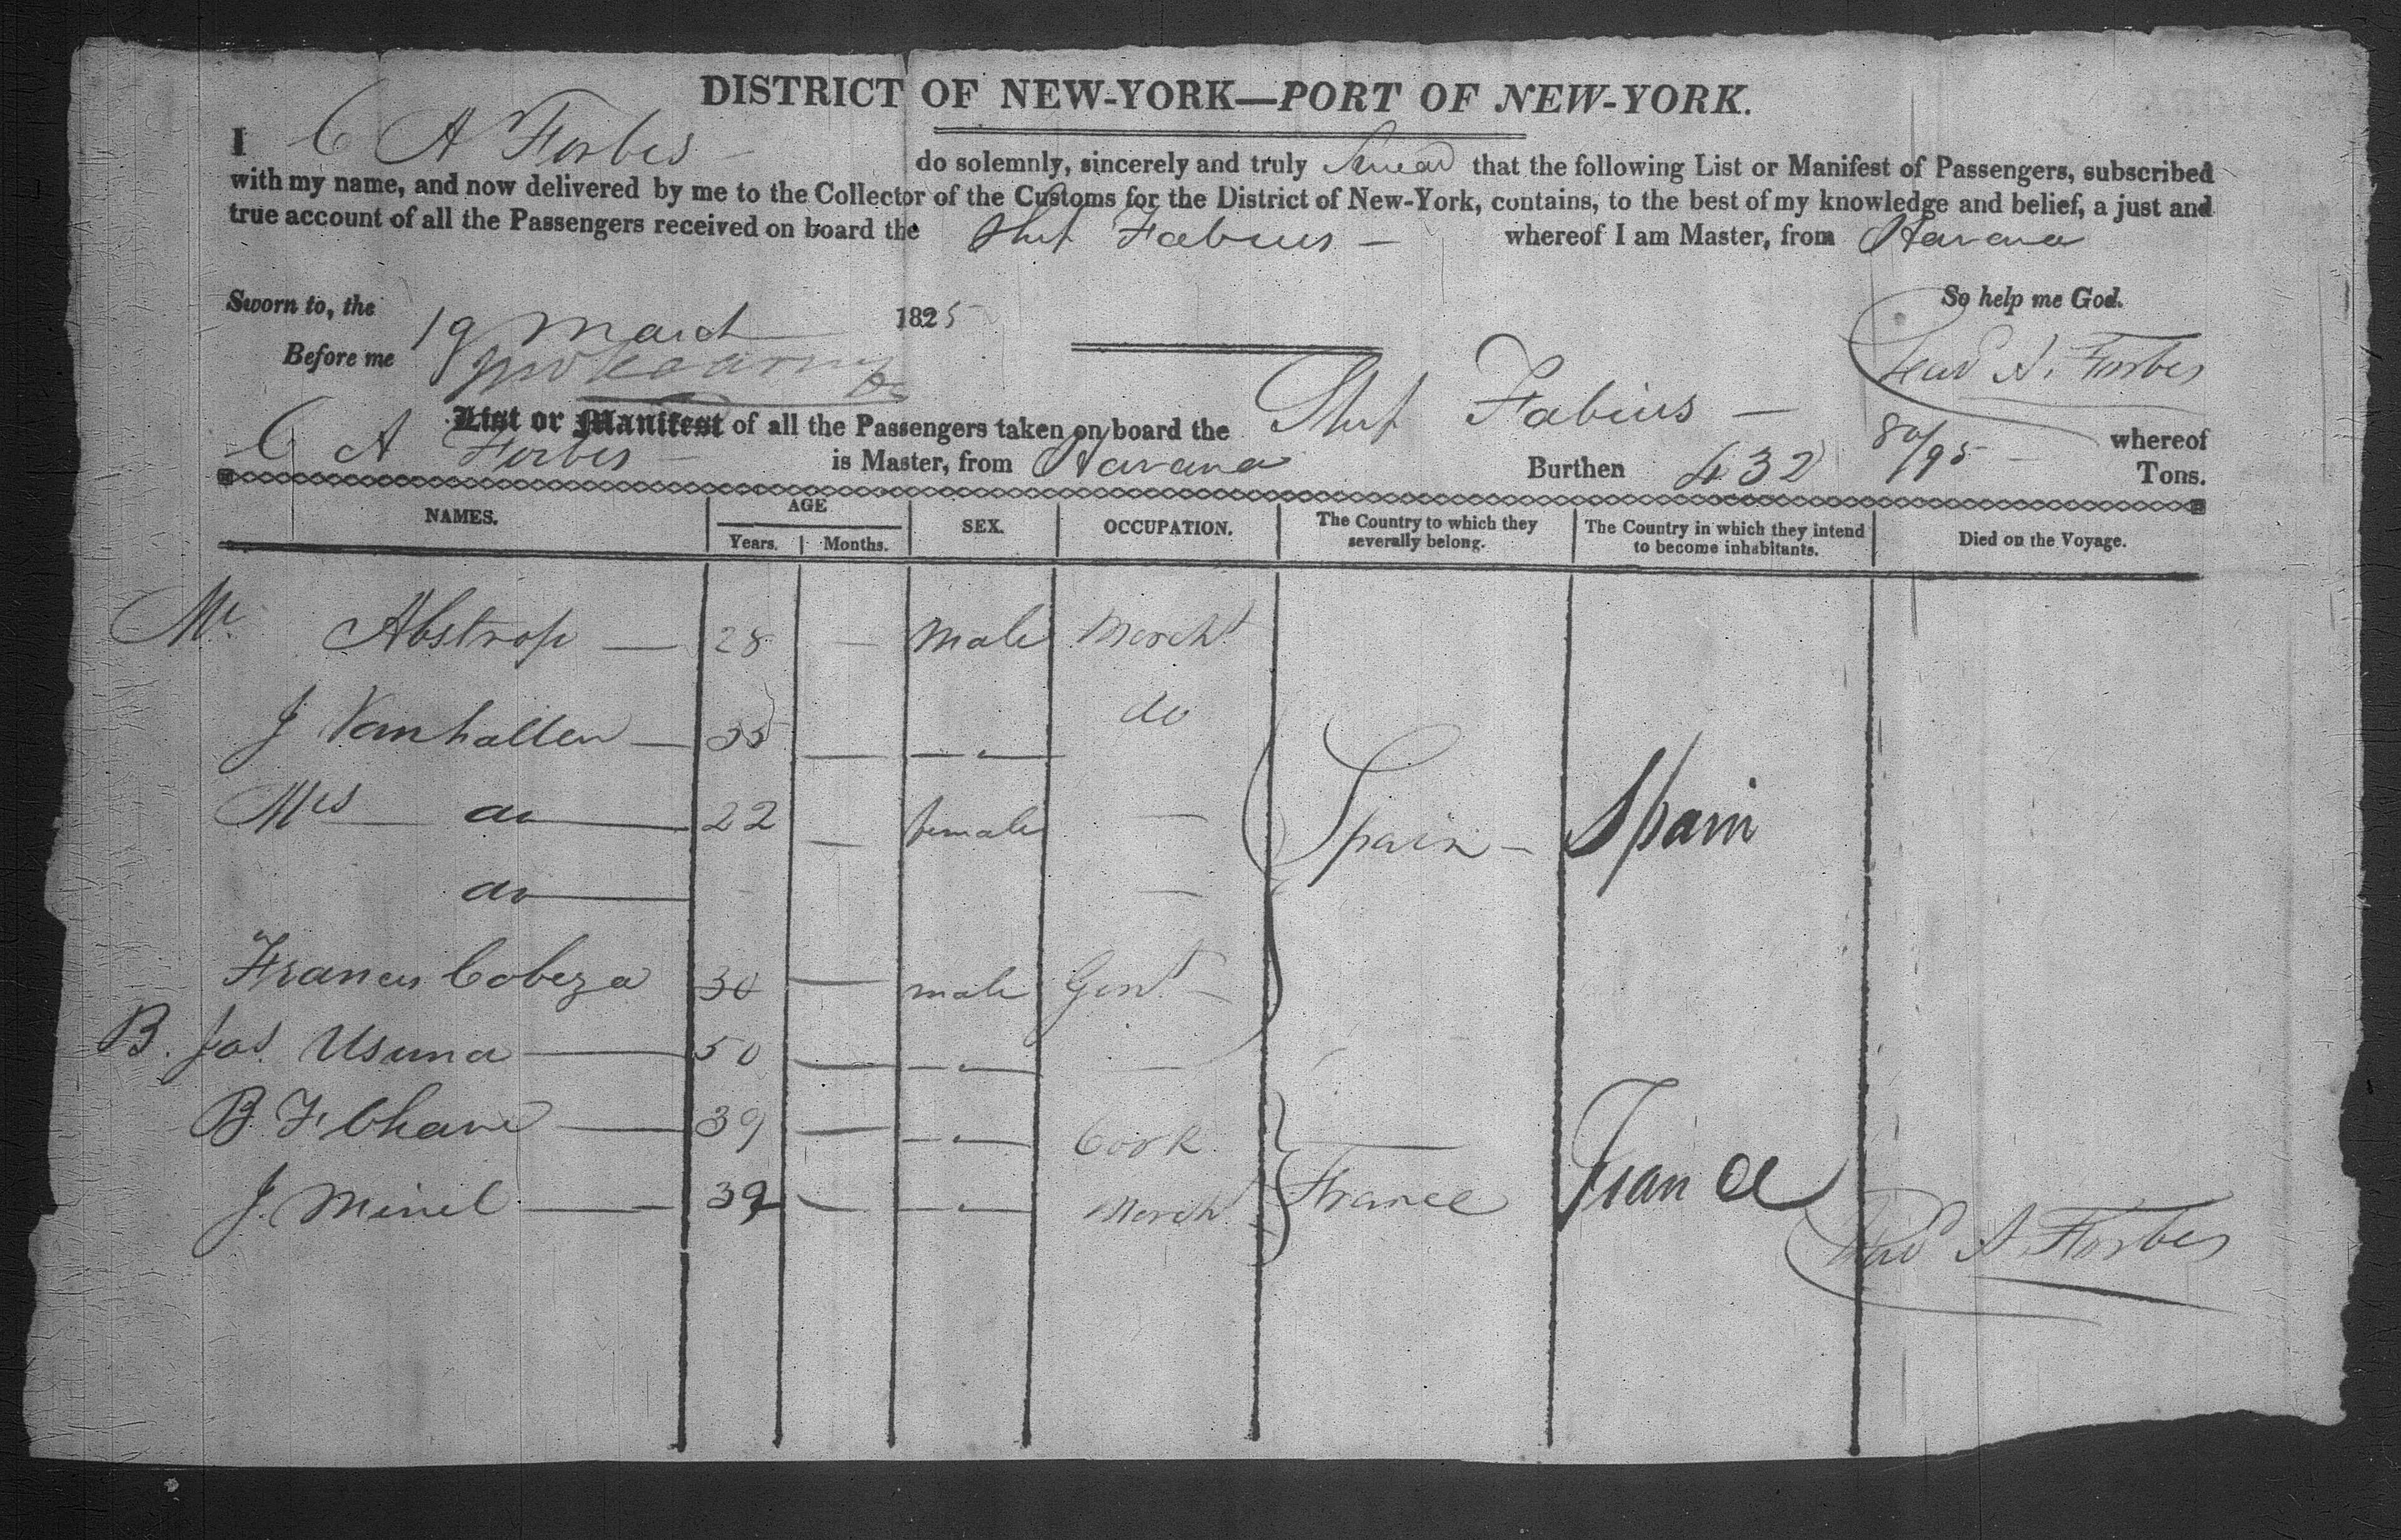 DISTRICT OF NEW-YORK—PORT OF NEW-YORK.
I C A Forbes do solemnly, sincerely and truly Swear that the following List or Manifest of Passengers, subscribed
with my name, and now delivered by me to the Collector of the Customs for the District of New-York, contains, to the best of my knowledge and belief, a just and
true account of all the Passengers received on board the Ship Fabius – whereof I am Master, from Havana
So help me God.
Sworn to, the 19 March 1825
Before me
A. Forbes
List or Manifest of all the Passengers taken on board the Ship Fabius — whereof
C A Forbes is Master, from Havana Burthen 432 80/95 Tons.
NAMES. AGE SEX. OCCUPATION. The Country to which they severally belong. The Country in which they intend to become inhabitants. Died on the Voyage.
Years. Months.
Mr. Abstrop — 28 — Male Mercht
J Vanhallen — 35 — — " — do
Mrs do — 22 — female — Spain – Spain
do — —
Francis Cobeza 30 — male Gent –
B. Jos. Usuna — 50 — — " — —
B. F Chave — 39 — — " — Cook
J. Minel — 39 — — " — Mercht France France
A. Forbes